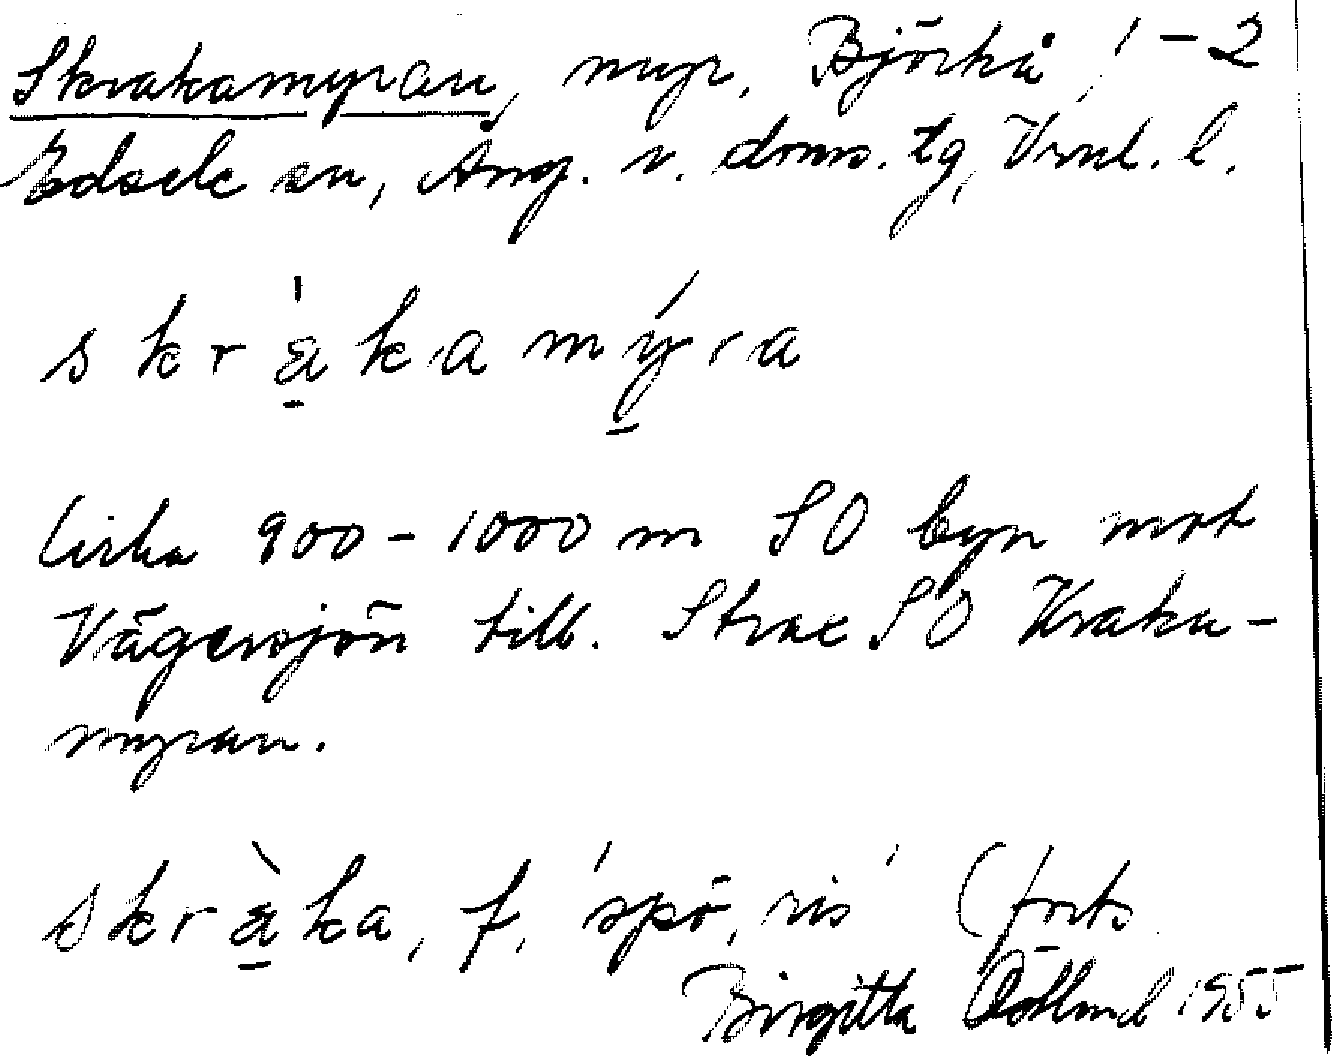 Skrakamyran, myr, Björkå 1-2
Edsele sn, Ång. v. doms. tg, Vrnl. l.
skràkamýra
Cirka 900-1000 m SO byn mot
Vägersjön till. Strax SO Kraka-
myran.
skràka, f, 'spö, ris' (forts.
Birgitta Östlund 1955